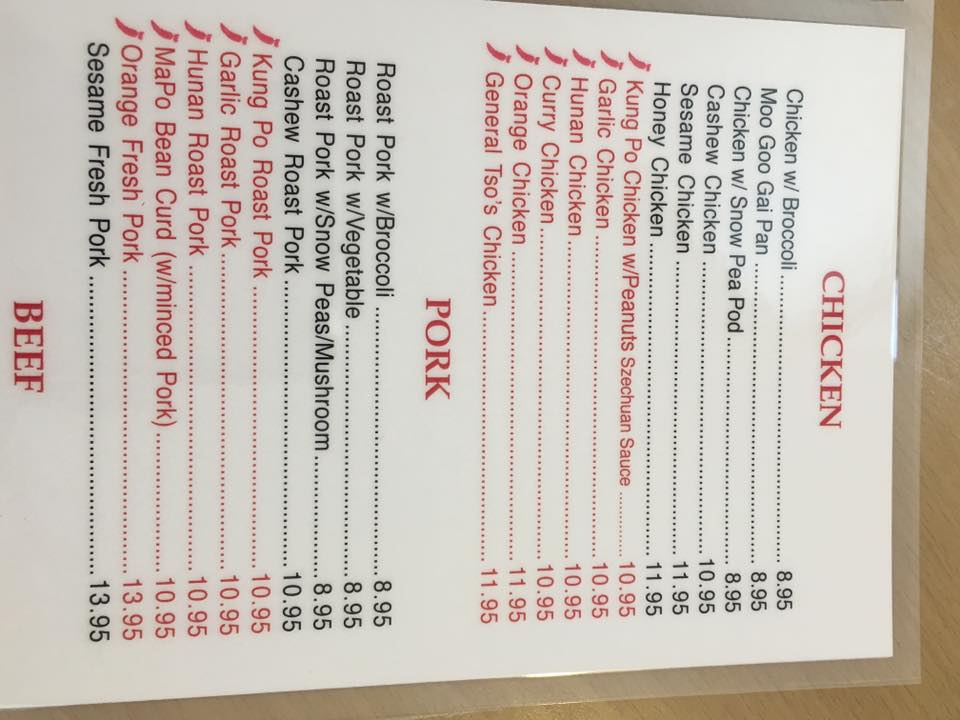 CHICKEN
Chicken w/ Broccoli 8.95
Moo Goo Gai Pan 8.95
Chicken w/ Snow Pea Pod 8.95
Cashew Chicken 10.95
Sesame Chicken 11.95
Honey Chicken 11.95
Kung Po Chicken w/Peanuts Szechuan Sauce 10.95
Garlic Chicken 10.95
Hunan Chicken 10.95
Curry Chicken 10.95
Orange Chicken 11.95
General Tso's Chicken 11.95
PORK
Roast Pork w/Broccoli 8.95
Roast Pork w/Vegetable 8.95
Roast Pork w/Snow Peas/Mushroom 8.95
Cashew Roast Pork 10.95
Kung Po Roast Pork 10.95
Garlic Roast Pork 10.95
Hunan Roast Pork 10.95
MaPo Bean Curd (w/minced Pork) 10.95
Orange Fresh Pork 13.95
Sesame Fresh Pork 13.95
BEEF